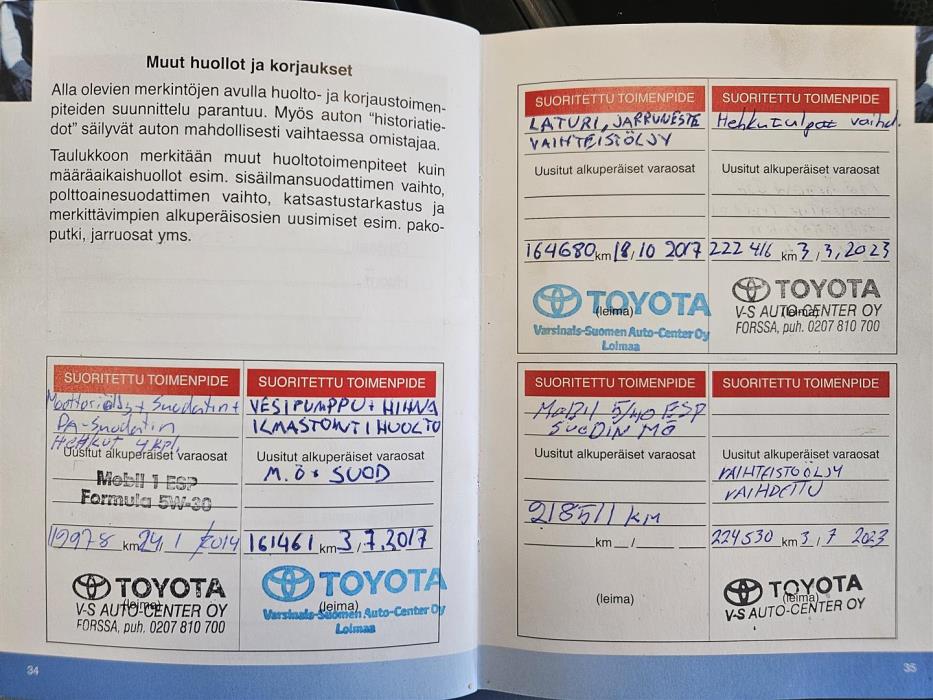 Muut huollot ja korjaukset
Alla olevien merkintöjen avulla huolto- ja korjaustoimen-
piteiden suunnittelu parantuu. Myös auton "historiatie-
dot" säilyvät auton mahdollisesti vaihtaessa omistajaa.
Taulukkoon merkitään muut huoltotoimenpiteet kuin
määräaikaishuollot esim. sisäilmansuodattimen vaihto,
polttoainesuodattimen vaihto, katsastustarkastus ja
merkittävimpien alkuperäisosien uusimiset esim. pako-
putki, jarruosat yms.
SUORITETTU TOIMENPIDE
Moottoriöljy + Suodatin +
PA-Suodatin
Hehkut 4 kpl.
Uusitut alkuperäiset varaosat
Mobil 1 ESP
Formula 5W-30
km 24 / 1 2014
TOYOTA
(leima)
V-S AUTO-CENTER OY
FORSSA, puh. 0207 810 700
SUORITETTU TOIMENPIDE
VESIPUMPPU + HIHNA
ILMASTOINTIHUOLTO
Uusitut alkuperäiset varaosat
M.Ö + SUOD
161461 km 3 / 7.2017
TOYOTA
(leima)
Varsinais-Suomen Auto-Center Oy
Loimaa
34
SUORITETTU TOIMENPIDE
LATURI, JARRUNESTE
VAIHTEISTÖLJY
Uusitut alkuperäiset varaosat
164680 km 18 / 10 2017
TOYOTA
(leima)
Varsinais-Suomen Auto-Center Oy
Loimaa
SUORITETTU TOIMENPIDE
Hehkutulpat vaihd.
Uusitut alkuperäiset varaosat
222 416 km 3 / 3, 2023
TOYOTA
(leima)
V-S AUTO-CENTER OY
FORSSA, puh. 0207 810 700
SUORITETTU TOIMENPIDE
5/40 ESP
SUODIN MÖ
Uusitut alkuperäiset varaosat
218511 KM
km /
(leima)
SUORITETTU TOIMENPIDE
Uusitut alkuperäiset varaosat
VAIHTEISTOÖLJY
VAIHDETTU
224530 km 3 / 7 2023
TOYOTA
(leima)
V-S AUTO-CENTER OY
35